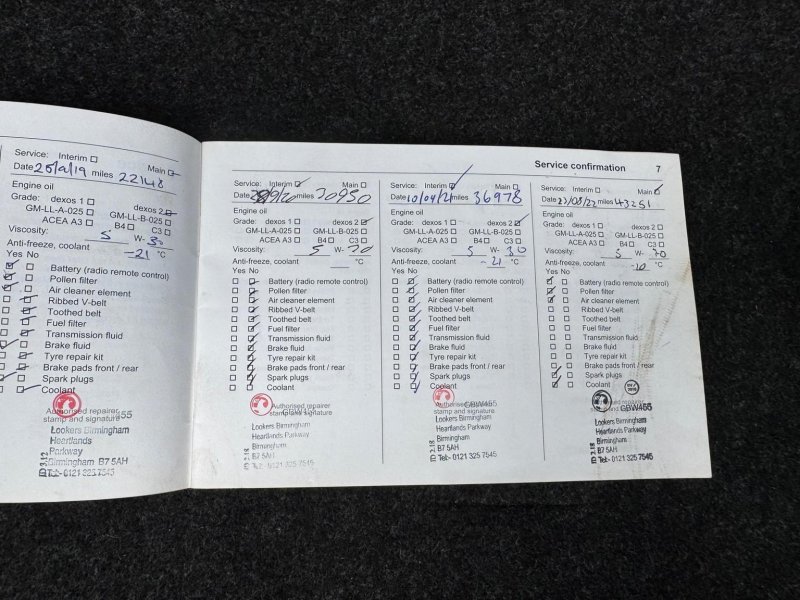 Service: Interim ☐ Main ☑
Date 20/9/19 miles 22148
Engine oil
Grade: dexos 1 ☐ dexos 2 ☑
GM-LL-A-025 ☐ GM-LL-B-025 ☐
ACEA A3 ☐ B4 ☐ C3 ☐
Viscosity: 5 W- 30
Anti-freeze, coolant -21 °C
Yes No
Battery (radio remote control)
Pollen filter
Air cleaner element
Ribbed V-belt
Toothed belt
Fuel filter
Transmission fluid
Brake fluid
Tyre repair kit
Brake pads front / rear
Spark plugs
Coolant
Authorised repairer
stamp and signature
Lookers Birmingham
Heartlands
Parkway
Birmingham B7 5AH
Tel:- 0121 325 7545
Service confirmation 7
Service: Interim ☑ Main ☐
Date miles 30950
Engine oil
Grade: dexos 1 ☐ dexos 2 ☑
GM-LL-A-025 ☐ GM-LL-B-025 ☐
ACEA A3 ☐ B4 ☐ C3 ☐
Viscosity: 5 W-
Anti-freeze, coolant °C
Yes No
Battery (radio remote control)
Pollen filter
Air cleaner element
Ribbed V-belt
Toothed belt
Fuel filter
Transmission fluid
Brake fluid
Tyre repair kit
Brake pads front / rear
Spark plugs
Coolant
Authorised repairer
stamp and signature
Lookers Birmingham
Heartlands Parkway
Birmingham
B7 5AH
Tel:- 0121 325 7545
Service: Interim ☑ Main ☐
Date 10/04/21 miles 36978
Engine oil
Grade: dexos 1 ☐ dexos 2 ☑
GM-LL-A-025 ☐ GM-LL-B-025 ☐
ACEA A3 ☐ B4 ☐ C3 ☐
Viscosity: 5 W- 30
Anti-freeze, coolant -21 °C
Yes No
Battery (radio remote control)
Pollen filter
Air cleaner element
Ribbed V-belt
Toothed belt
Fuel filter
Transmission fluid
Brake fluid
Tyre repair kit
Brake pads front / rear
Spark plugs
Coolant
Authorised repairer
stamp and signature
GBW455
Lookers Birmingham
Heartlands Parkway
Birmingham
B7 5AH
Tel:- 0121 325 7545
Service: Interim ☐ Main ☑
Date 22/03/22 miles 43251
Engine oil
Grade: dexos 1 ☐ dexos 2 ☐
GM-LL-A-025 ☐ GM-LL-B-025 ☐
ACEA A3 ☐ B4 ☐ C3 ☐
Viscosity: 5 W-
Anti-freeze, coolant °C
Yes No
Battery (radio remote control)
Pollen filter
Air cleaner element
Ribbed V-belt
Toothed belt
Fuel filter
Transmission fluid
Brake fluid
Tyre repair kit
Brake pads front / rear
Spark plugs
Coolant
Authorised repairer
stamp and signature
GBW455
Lookers Birmingham
Heartlands Parkway
Birmingham
B7 5AH
Tel:- 0121 325 7545